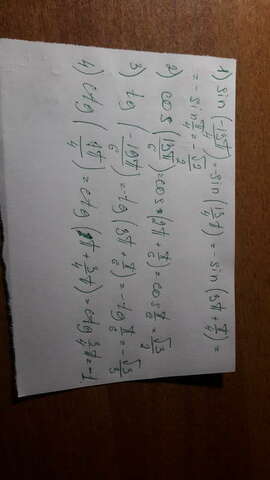 1) sin (-13π/4) = -sin (13π/4) = -sin (3π + π/4) =
= -sin π/4 = -√2/2
2) cos (13π/6) = cos (2π + π/6) = cos π/6 = √3/2
3) tg (-19π/6) = -tg (3π + π/6) = -tg π/6 = -√3/3
4) ctg (7π/4) = ctg (π + 3π/4) = ctg 3π/4 = -1